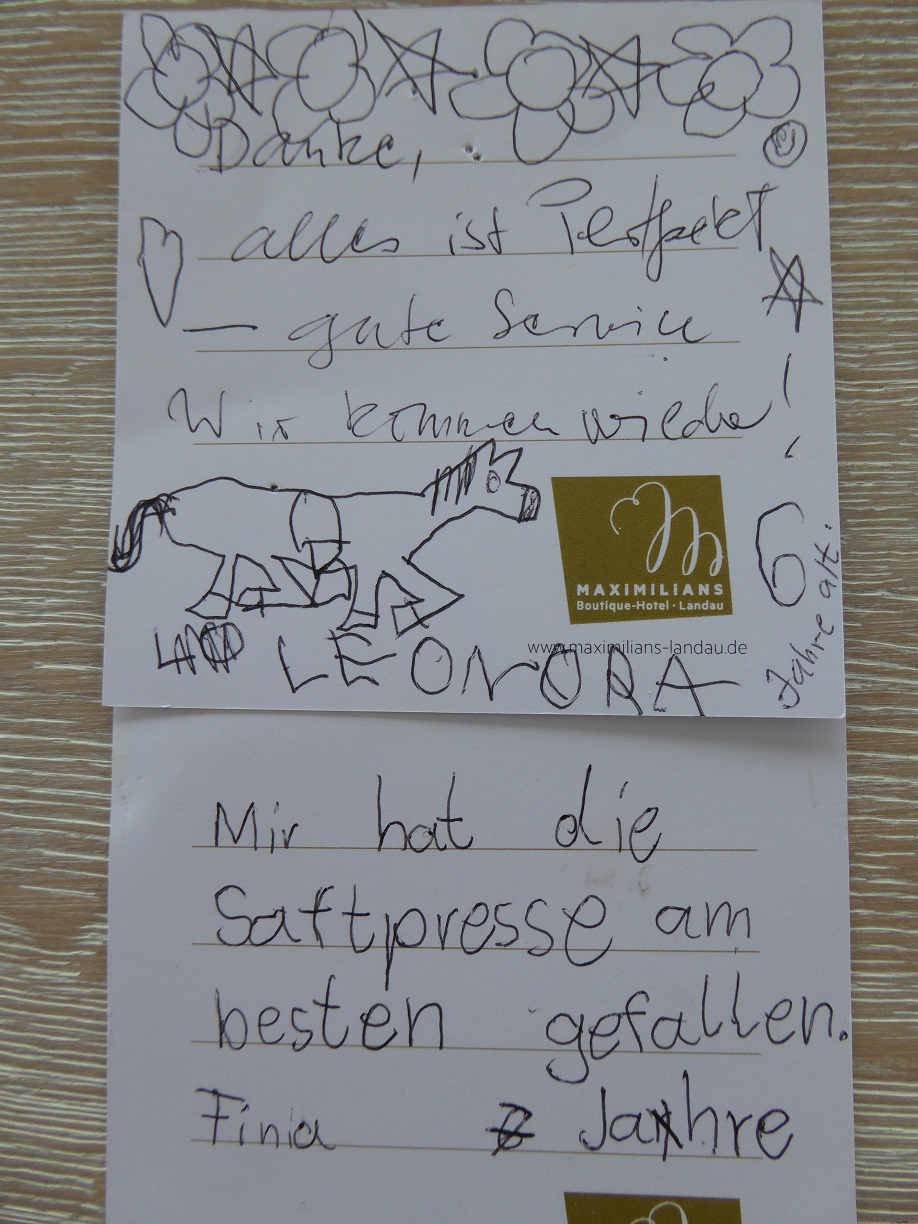 Danke,
alles ist Perfekt
– gute Service
Wir kommen wieder!
MAXIMILIANS
Boutique-Hotel · Landau
www.maximilians-landau.de
LEONORA
6
Jahre alt.
Mir hat die
Saftpresse am
besten gefallen.
Finia Jahre